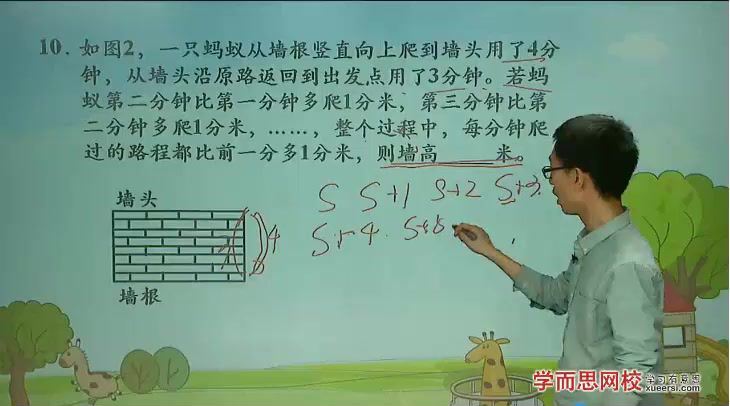 10. 如图2，一只蚂蚁从墙根竖直向上爬到墙头用了4分
钟，从墙头沿原路返回到出发点用了3分钟。若蚂
蚁第二分钟比第一分钟多爬1分米，第三分钟比第
二分钟多爬1分米，……，整个过程中，每分钟爬
过的路程都比前一分多1分米，则墙高______米。
墙头
S S+1 S+2 S+3
4
S+4
墙根
学而思网校 学习有意思
xueersi.com